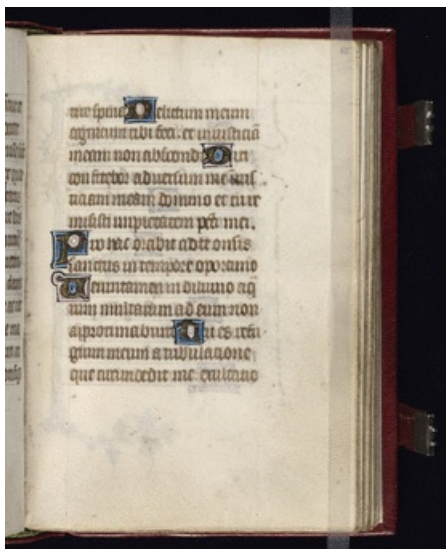 tur spina Delictum meum
cognitum tibi feci et iniusticiã
meam non abscondi Dixi
confitebor adversum me inius
ticiam meam domino et tu re
misisti impietatem pcti mei.
Pro hac orabit ad te omnis
sanctus in tempore oportuno
Verumtamen in diluvio aq
rum multarum ad eum non
aproximabunt Tu es refu
gium meum a tribulatione
que circumdedit me exultatio